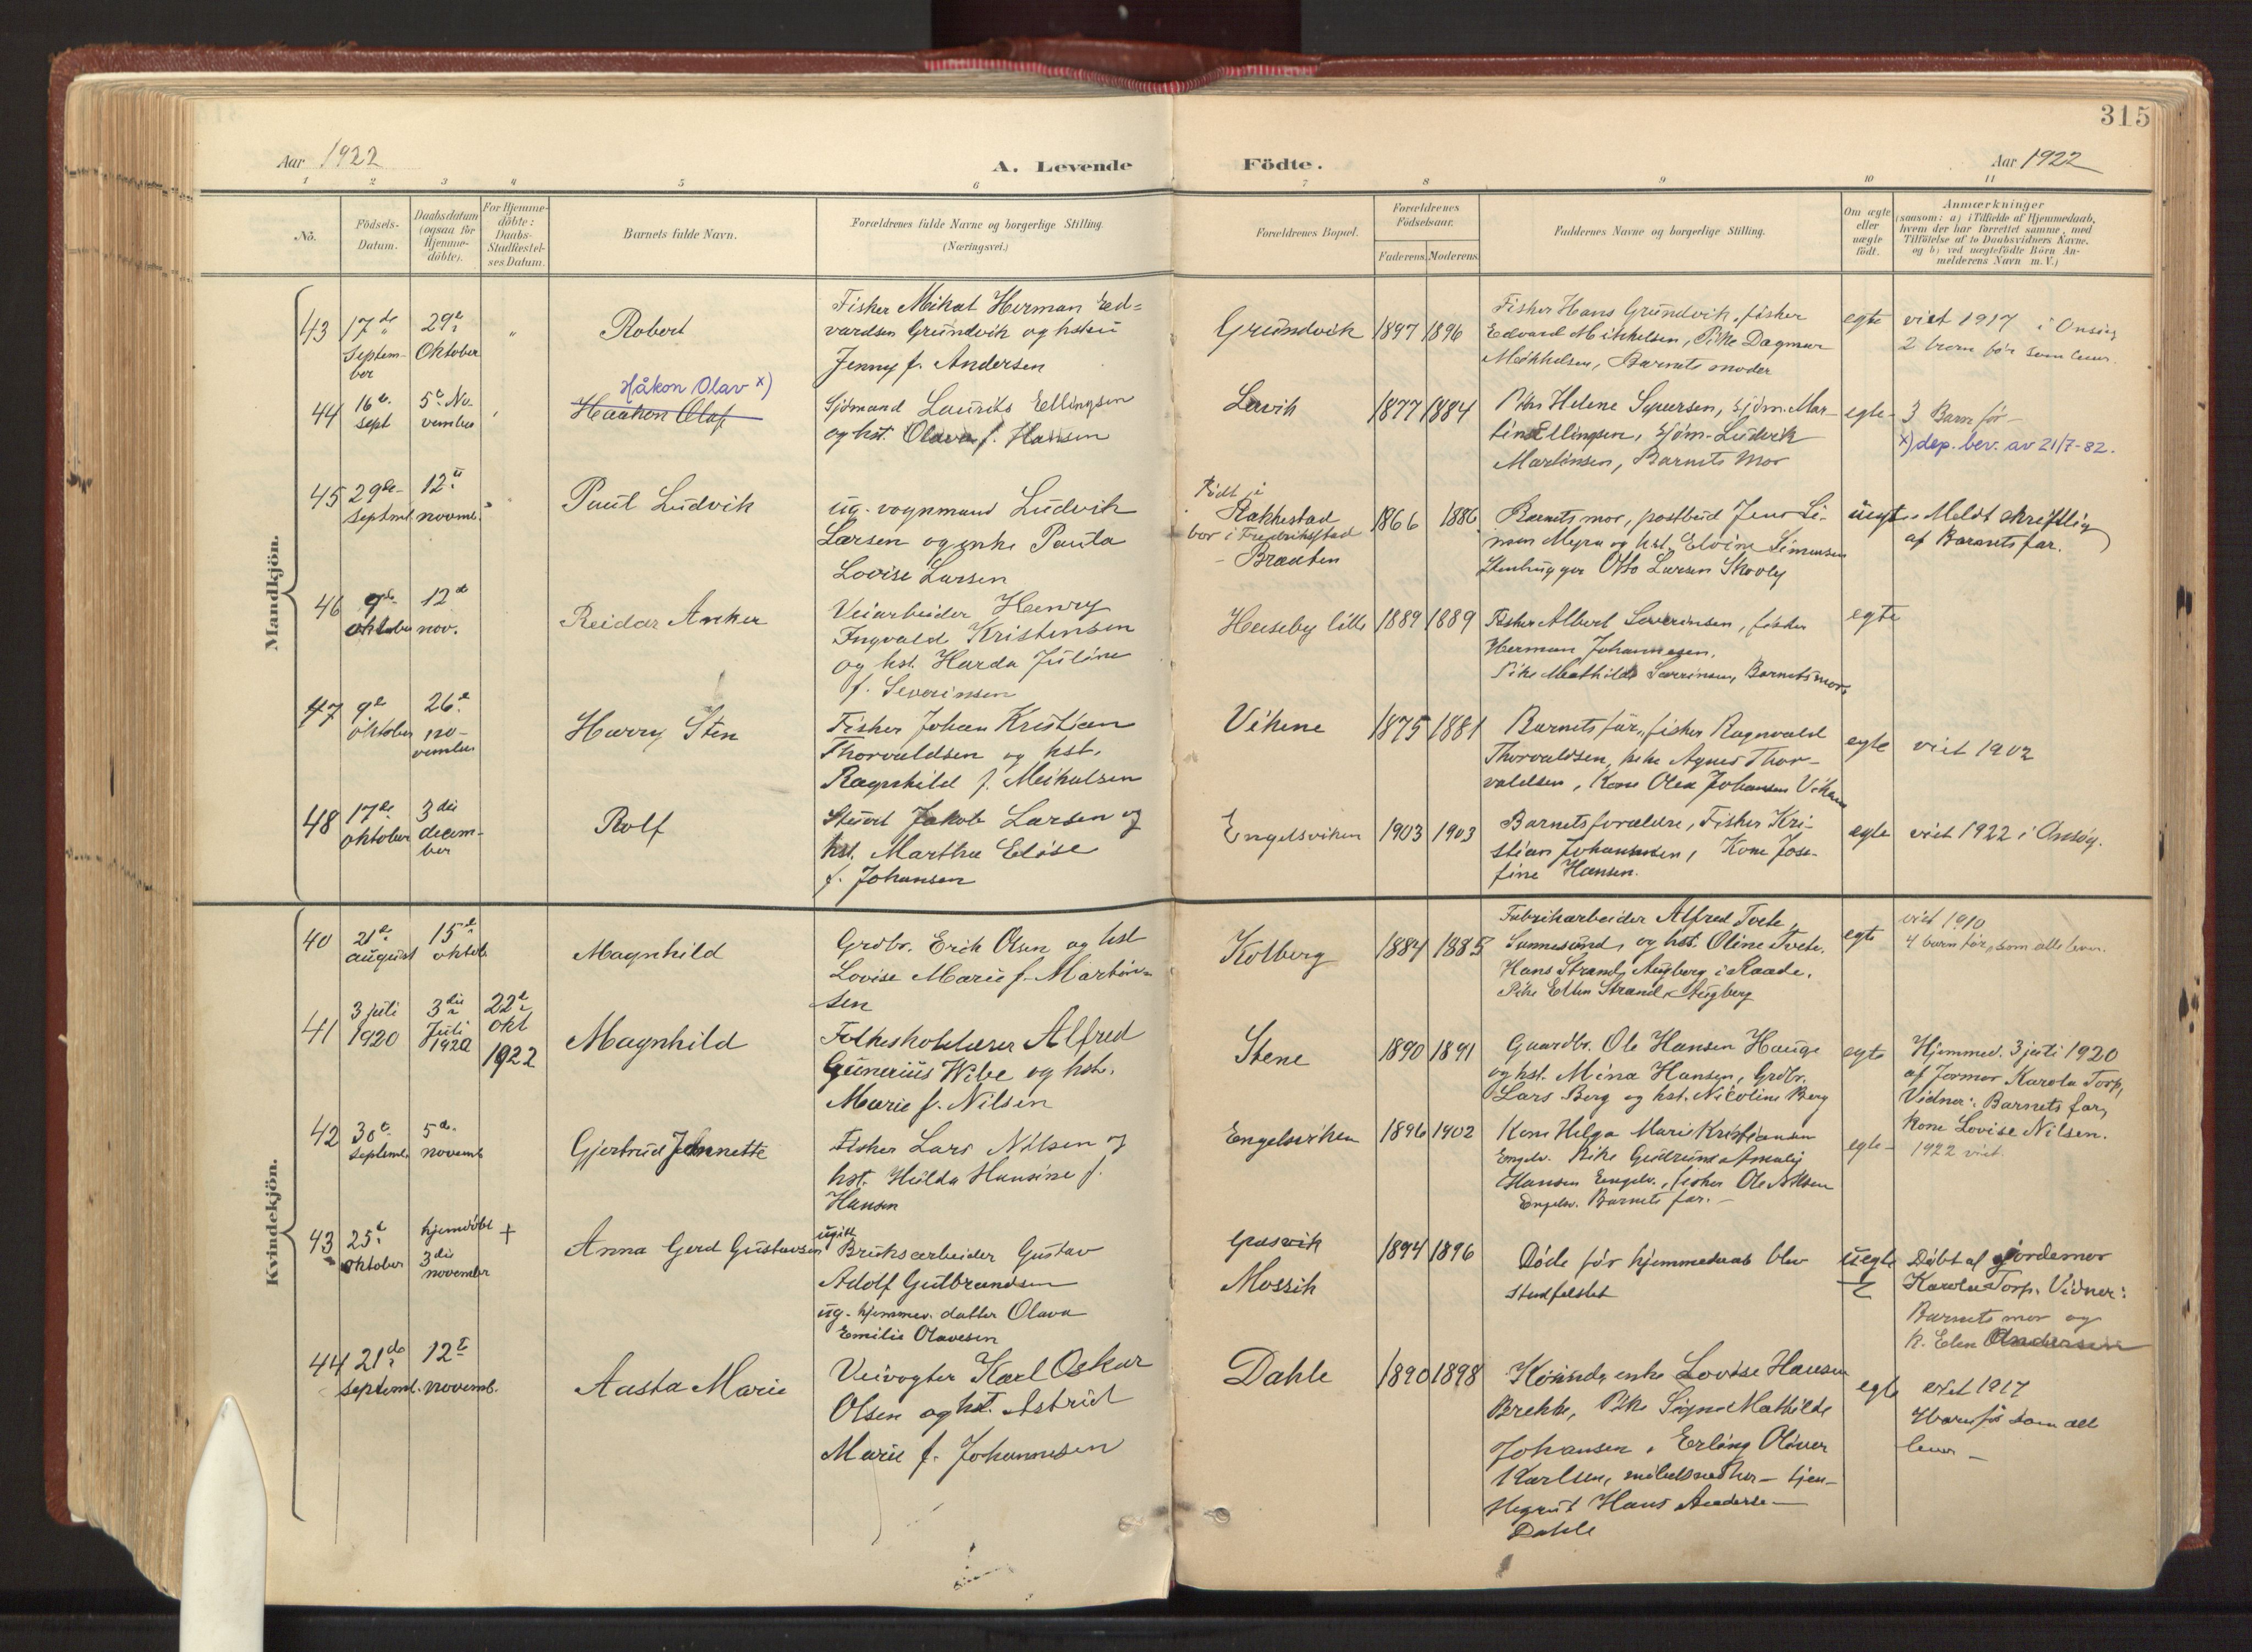 315
Aar 1922
A. Levende
Födte.
Aar 1922
1 2 3 4 5 6 7 8 9 10 11
Nö.
Födsels-
Datum.
Daabsdatum
(ogsaa för
Hjemme-
döbte).
For Hjemme-
döbte:
Daabs-
Stadfæstel-
ses Datum.
Barnets fulde Navn.
Forældrenes fulde Navne og borgerlige Stilling.
(Næringsvei.)
Forældrenes Bopæl.
Forældrenes
Födselsaar.
Faderens. Moderens.
Faddernes Navne og borgerlige Stilling.
Om ægte
eller
uægte
födt.
Anmærkninger
(saasom: a) i Tilfælde af Hjemmedaab,
hvem der har forrettet samme, med
Tilföielse af to Daabsvidners Navne.
og b) ved uægtefödte Börn An-
melderens Navn m. V.)
Mandkjön.
43
17de
Septem-
ber
29e
Oktober
"
Robert
Fisher Mikal Herman Ed=
vardsen Grundvik og hstru
Jenny f. Andersen
Grundvik
1897
1896
Fisher Hans Grundvik, fisher
Edvard Mikkelsen, Pike Dagmar
Mikkelsen, Barnets moder
egte
viet 1917 i Onsøy
2 born før som lever.
44
16de
Sept
5e No-
vember
Håkon Olav x)
Haakon Olaf
Sjömand Laurits Ellingsen
og hst. Olava f. Hansen
Lervik
1877
1884
Pike Helene Syversen, sjöm. Mar-
tin Ellingsen, sjöm. Ludvik
Martinsen, Barnets mor
egte
3 Barn før -
x) dep. bev. av 21/7-82.
45
29de
septmb.
12te
novmb.
Paul Ludvik
ug. vognmand Ludvik
Larsen og enke Paula
Lovise Larsen
Födt i
Rakkestad
bor i Fredrikstad
- Braaten
1866
1886
Barnets mor, postbud Jens Si-
monsen Myra og hst. Elvine Simensen
Stenhugger Otto Larsen Skovly
uegte
Meldt skriftlig
af Barnets far.
46
9de
oktober
12te
nov.
Reidar Anker
Veiarbeider Henry
Ingvald Kristensen
og hst. Harda Juline
f. Severinsen
Huseby lille
1889
1889
Fisher Albert Severinsen, fisher
Herman Johannesen,
Pike Mathilde Severinsen, Barnets mor.
egte
47
9de
oktober
26e
no-
vember
Harry Sten
Fisher Johan Kristian
Thorvaldsen og hst.
Ragnhild f. Mikalsen
Vikene
1875
1881
Barnets far, fisher Ragnvald
Thorvaldsen, pike Agnes Thor-
valdsen, Kone Olea Johansen Vikene
egte
viet 1902
48
17de
oktober
3die
decem-
ber
Rolf
Stuert Jakob Larsen og
hst. Martha Elise
f. Johansen
Engelsviken
1903
1903
Barnets forældre, Fisher Kri-
stian Johannesen, Kone Jose-
fine Hansen.
egte
viet 1922 i Onsöy.
Kvindekjön.
40
21de
august
15de
oktob
Magnhild
Grdbr. Erik Olsen og hst
Lovise Marie f. Martin-
sen
Kolberg
1884
1885
Fabrikarbeider Alfred Tvete,
Sannesund, og hst. Oline Tvete.
Hans Strand, Augberg i Raade.
Pike Ellen Strand, Augberg
egte
viet 1910
4 barn før, som alle lever.
41
3 juli
1920
3die
Juli
1920
22de
okt
1922
Magnhild
Folkeskolelærer Alfred
Gunerius Wibe og hst.
Marie f. Nilsen
Stene
1890
1891
Gaardbr. Ole Hansen Hauge
og hst. Mina Hansen, Grdbr.
Lars Berg og hst. Nicoline Berg
egte
Hjemmed. 3 juli 1920
af Jormor Karola Torp,
Vidner: Barnets far,
kone Lovise Nilsen.
42
30te
septemb.
5de
novemb
Gjertrud Jannette
Fisher Lars Nilsen og
hst. Hilda Hansine f.
Hansen
Engelsviken
1896
1902
Kone Helga Marie Kristiansen
Engelv. Pike Gudrun Amalie
Hansen Engelv., fisher Ole Nilsen
Engelsv. Barnets far. -
egte
1922 viet.
43
25e
oktober
hjemdöbt
3die
november
+
Anna Gerd Gustavsen
ugift
Bruksarbeider Gustav
Adolf Gulbrandsen
ug. hjemmev. datter Olava
Emilie Olavesen
Mossik
1894
1896
Döde för hjemmedaab blev
stadfestet
uegte
Döbt af jordemor
Karola Torp. Vidner:
Barnets mor og
k. Elen Andersen
44
21de
septemb.
12te
novemb.
Aasta Marie
Veivogter Karl Oskar
Olsen og hst. Astrid
Marie f. Johannesen
Dahle
1890
1898
Kvinde, enke Lovise Hansen
Brekke, Pike Signe Mathilde
Johansen, Erling Oliver
Karlsen, möbelsnedker- tjen-
stegut Hans Andersen
Dahle
egte
viet 1917
barn før som all
lever -